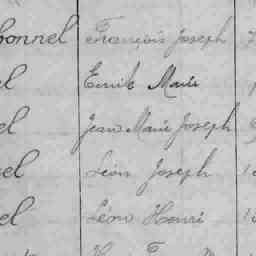 bonnel François Joseph
el Emile Marie
el Jean Marie Joseph
nel Léon Joseph
el Léon Henri